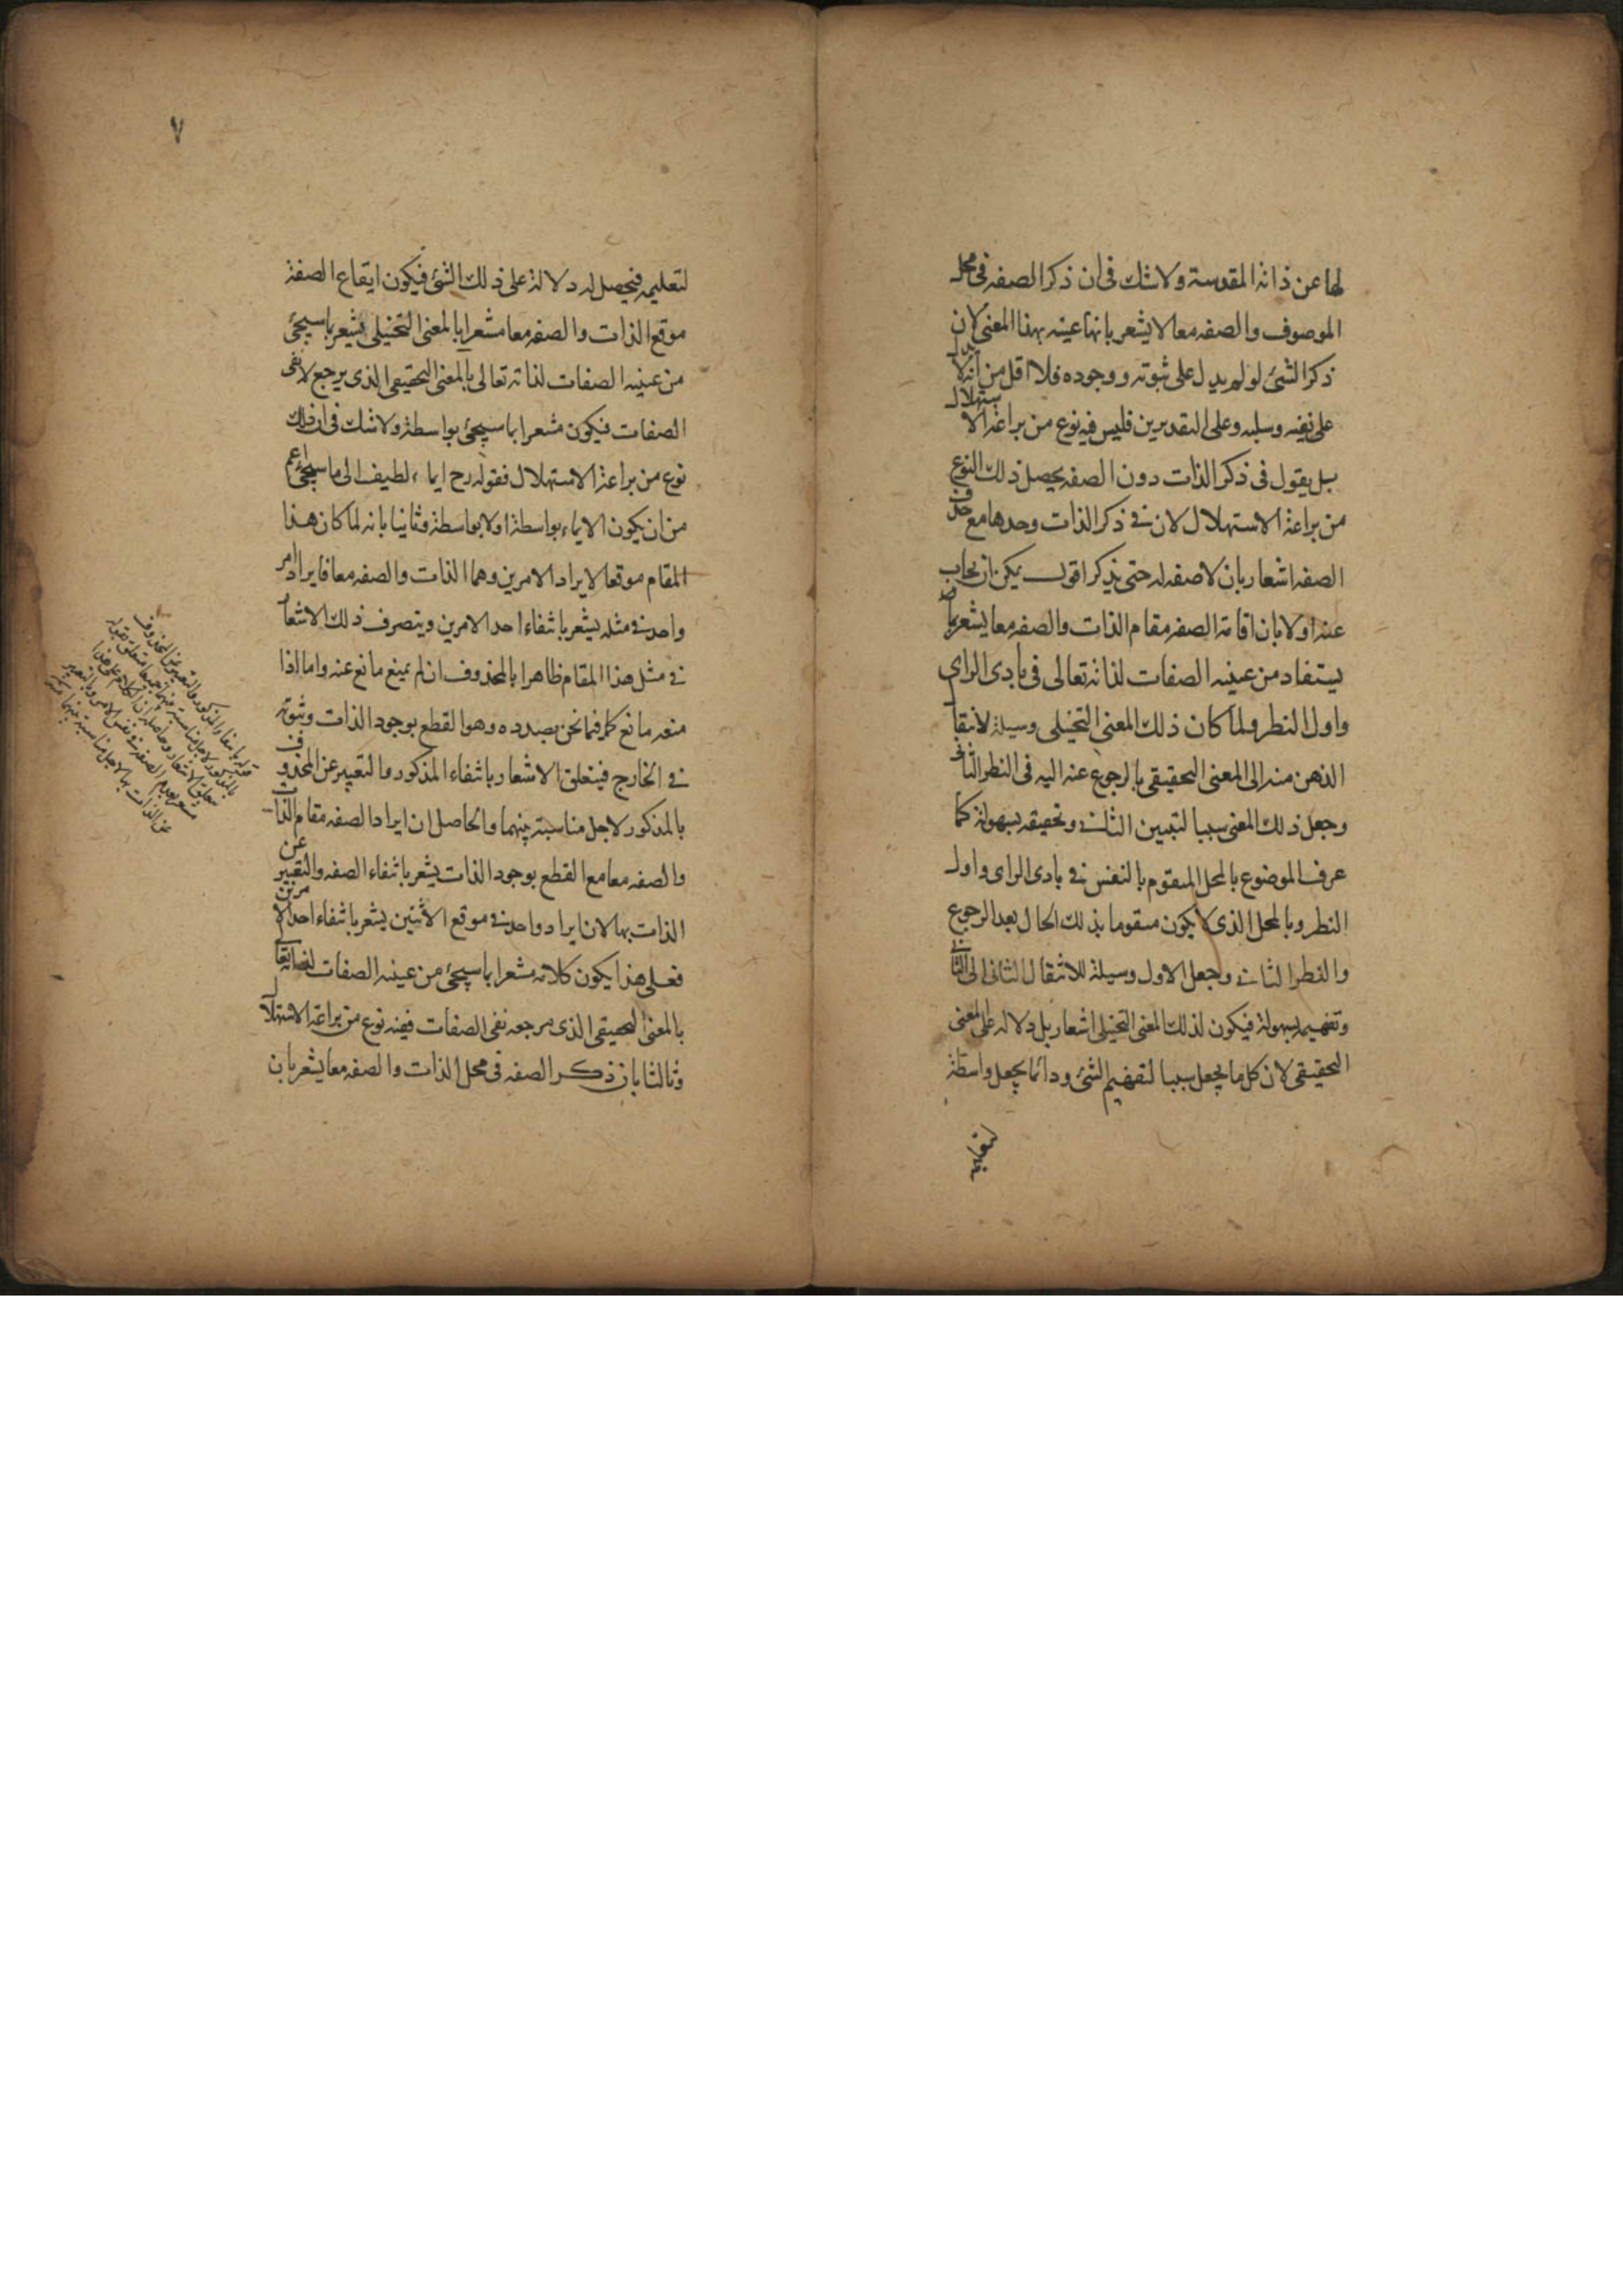 لها عن ذاته المقدسة ولا شك فى ان ذكر الصفه فى محل
الموصوف والصفه معا لا يشعر بانها عينه بهذا المعنى لان
ذكر الشئ لو لم يدل على ثبوته ووجوده فلا اقل من انه لا يدل
على نفيه وسلبه وعلى التقديرين فليس فيه نوع من براعة الاستهلال
بل يقول فى ذكر الذات دون الصفه يحصل ذلك النوع
من براعة الاستهلال لان فى ذكر الذات وحدها مع حذف
الصفه اشعار بان لا صفه له حتى يذكر اقول يمكن ان يجاب
عنه اولا بان اقامة الصفه مقام الذات والصفه معا يشعر بما
يستفاد من عينيه الصفات لذاته تعالى فى بادى الراى
واول النظر ولما كان ذلك المعنى التخيلى وسيلة لانتقال
الذهن منه الى المعنى التحقيقى بالرجوع عنه اليه فى النظر الثانى
وجعل ذلك المعنى سببا لتبيين الثانى وتحقيقه بسهولة كما
عرف الموضوع بالمحل المتقوم بالنفس فى بادى الراى واول
النظر وبالمحل الذى لا يكون متقوما بذلك الحال بعد الرجوع
والنظر الثانى وجعل الاول وسيلة للانتقال الثانى الى الثانى
وتفهيمه بسهولة فيكون لذلك المعنى التخيلى اشعار بل دلاله على المعنى
التحقيقى لان كل ما يجعل سببا لتفهيم الشئ ودائما يجعل واسطة
لتعليمه
٧
لتعليمه فيحصل له دلالة على ذلك الشئ فيكون ايقاع الصفة
موقع الذات والصفه معا مشعرا بالمعنى التخيلى يشعر بما سيجئ
من عينيه الصفات لذاته تعالى بالمعنى التحقيقى الذى يرجع لا نفى
الصفات فيكون مشعرا بما سيجئ بواسطة ولا شك فى ان ذلك
نوع من براعة الاستهلال فقوله رح ايماء لطيف الى ما سيجئ اعم
من ان يكون الايماء بواسطة او لا بواسطة وثانيا بانه لما كان هذا
المقام موقعا لايراد الامرين وهما الذات والصفه معا فايراد امر
واحد فى مثله يشعر بانتفاء احد الامرين ويتصرف ذلك الاشعار
فى مثل هذا المقام ظاهرا بالمحذوف ان لم يمنع مانع عنه واما اذا
منعه مانع كما فيما نحن بصدده وهو القطع بوجود الذات وثبوته
فى الخارج فيتعلق الاشعار بانتفاء المذكور والتعبير عن المحذوف
بالمذكور لاجل مناسبة بينهما والحاصل ان ايراد الصفه مقام الذات
والصفه معا مع القطع بوجود الذات يشعر بانتفاء الصفه والتعبير عن
الذات بها لان ايراد واحد فى موقع الاثنين يشعر بانتفاء احد الامرين
فعلى هذا يكون كلامه مشعرا بما سيجئ من عينيه الصفات لذاته تعالى
بالمعنى التحقيقى الذى مرجعه نفى الصفات ففيه نوع من براعة الاستهلال
وثالثا بان ذكر الصفه فى محل الذات والصفه معا يشعر بان
قوله بانتفاء المذكور والتعبير عن المحذوف
بالمذكور لاجل مناسبة بينهما
عن الذات بها لاجل مناسبة بينهما